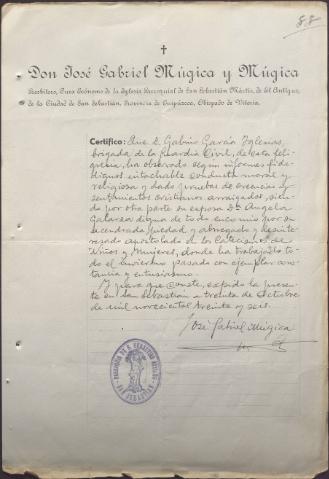 88
Don José Gabriel Múgica y Múgica
Presbítero, Cura Ecónomo de la Iglesia Parroquial de San Sebastián Mártir, de el Antiguo,
de la Ciudad de San Sebastián, Provincia de Guipúzcoa, Obispado de Vitoria.
Certifico: Que D. Gabino García Yglesias,
brigada de la Guardia Civil, de esta feli-
gresía, ha observado según informes fide-
dignos intachable conducta moral y
religiosa y dado pruebas de creencias y
sentimientos cristianos arraigados, sien-
do por otra parte su esposa Dª Angela
Galarza digna de todo encomio por su
acendrada piedad y abnegado y desinte-
resado apostolado en los Catecismos de
Niños y Mujeres, donde ha trabajado to-
do el invierno pasado con ejemplar cons-
tancia y entusiasmo.
Y para que conste, expido la presente
en San Sebastián a treinta de Octubre
de mil novecientos treinta y seis.
José Gabriel Múgica
PARROQUIA DE S. SEBASTIAN MARTIR
SAN SEBASTIAN